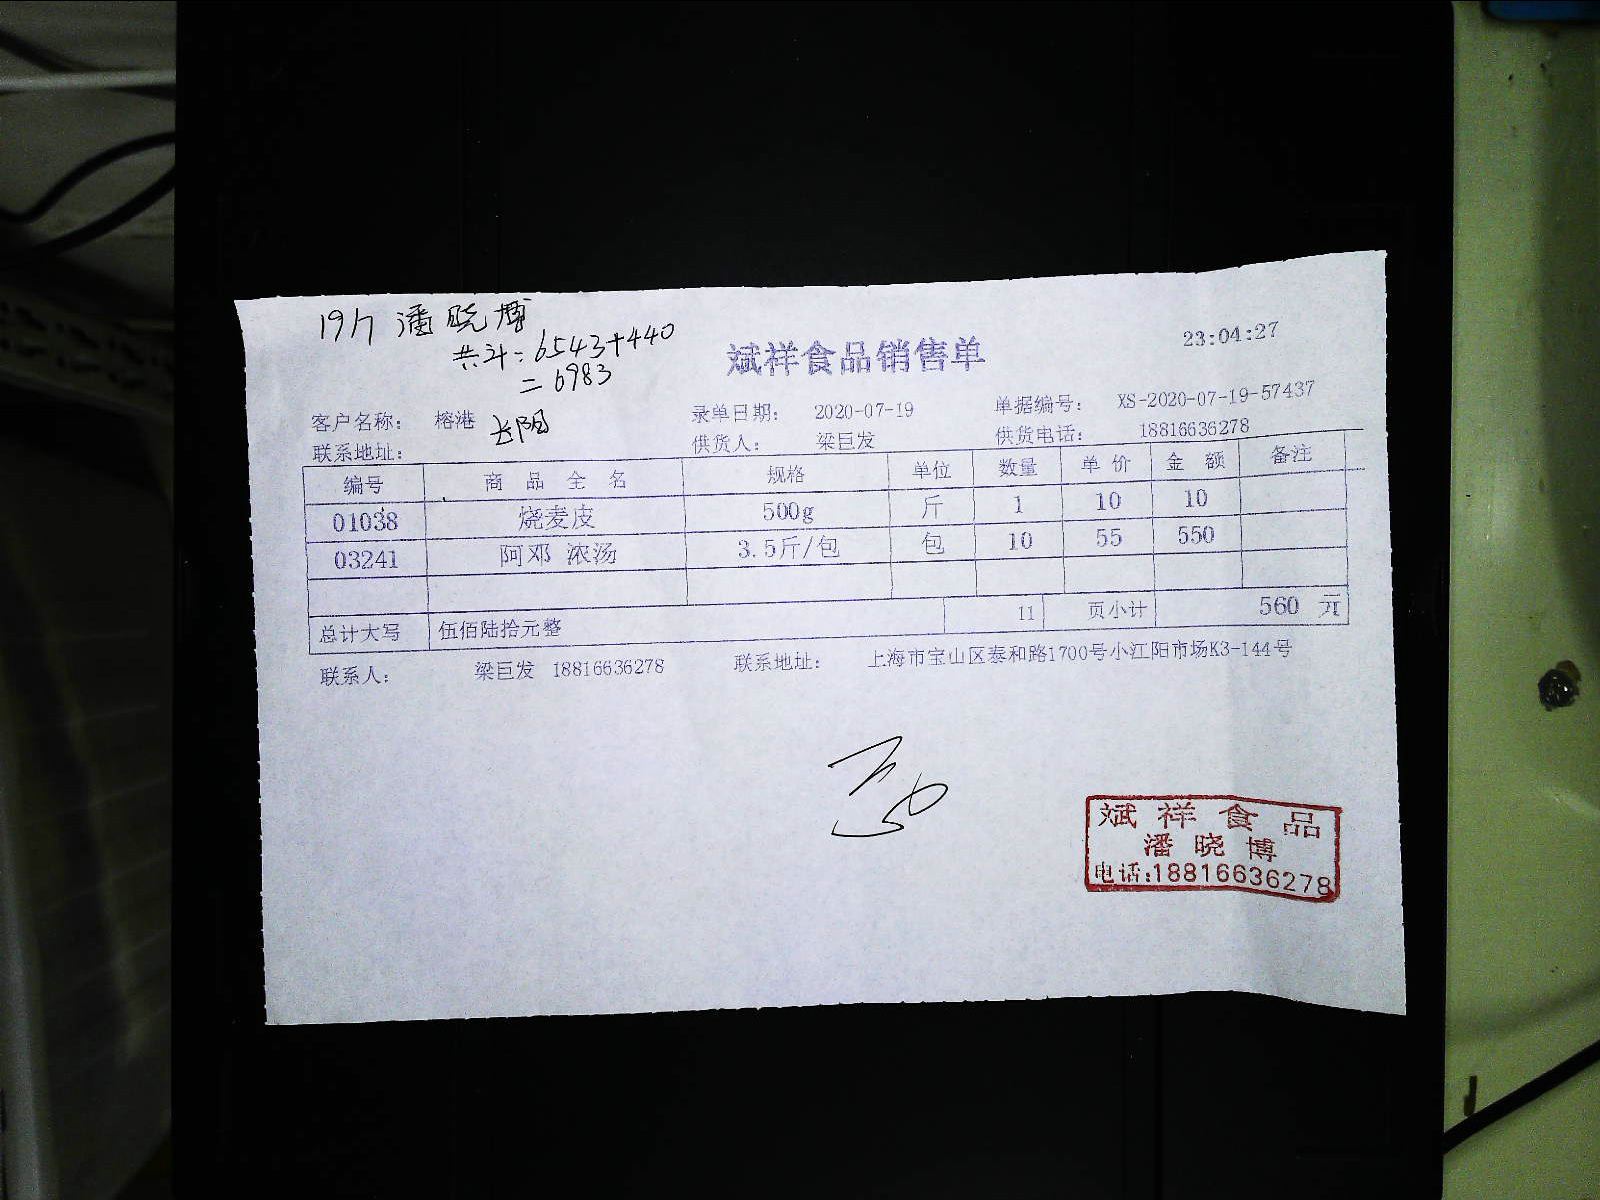 19/7 潘晓博
共计：6543+440
=6983
斌祥食品销售单
23:04:27
客户名称： 榕港 长阳 录单日期： 2020-07-19 单据编号： XS-2020-07-19-57437
联系地址： 供货人： 梁巨发 供货电话： 18816636278
编号 商品全名 规格 单位 数量 单价 金额 备注
01038 烧麦皮 500g 斤 1 10 10
03241 阿邓 浓汤 3.5斤/包 包 10 55 550
总计大写 伍佰陆拾元整 11 页小计 560 元
联系人： 梁巨发 18816636278 联系地址： 上海市宝山区泰和路1700号小江阳市场K3-144号
斌祥食品
潘晓博
电话:18816636278